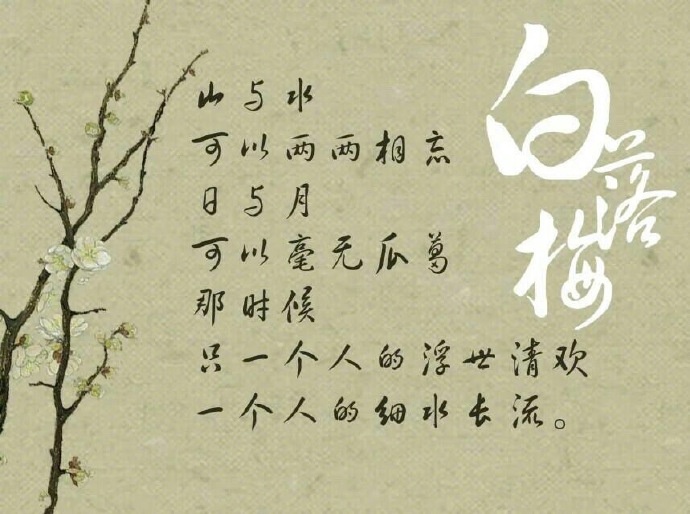 山与水
可以两两相忘
日与月
可以毫无瓜葛
那时候
只一个人的浮世清欢
一个人的细水长流。
白落梅